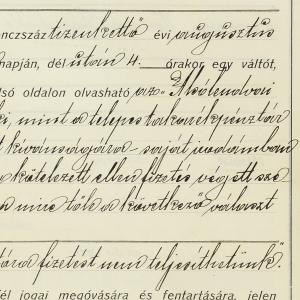 nczszáz tizenkettő évi augusztus
napján, dél után 4. órakor egy váltót,
lsó oldalon olvasható az „Alsólendvai
ki, mint a telepes takarékpénztár
kivánságára saját irodámban
a kötelezett ellen fizetés végett sze
a mire tőle a következő választ
fizetést nem teljesíthetünk."
fél jogai megóvására és fentartására, jelen